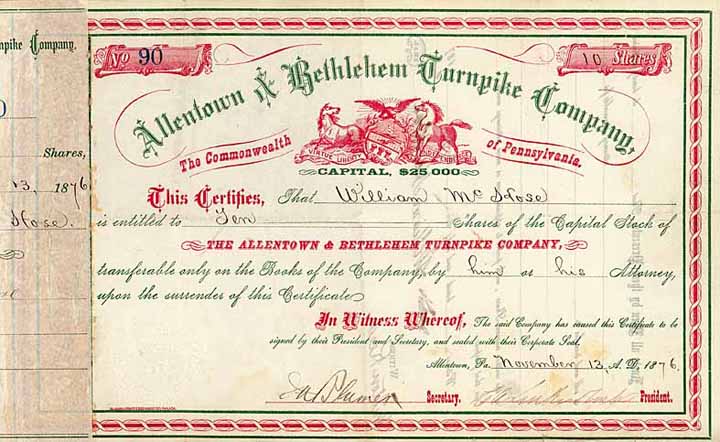 npike Company.
0
Shares,
13, 1876
Hose.
No 90
10 Shares
Allentown & Bethlehem Turnpike Company,
The Commonwealth of Pennsylvania.
VIRTUE LIBERTY
CAPITAL, $25.000
This Certifies, That William Mc Hose
is entitled to Ten Shares of the Capital Stock of
THE ALLENTOWN & BETHLEHEM TURNPIKE COMPANY,
transferable only on the Books of the Company, by him or his Attorney,
upon the surrender of this Certificate
In Witness Whereof, The said Company has caused this Certificate to be
signed by their President and Secretary, and sealed with their Corporate Seal.
Allentown, Pa. November 13, A. D. 1876.
Secretary. President.